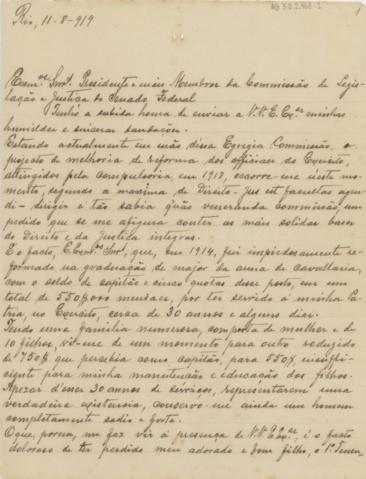 Rio, 11-8-919
1
Exmos Snrs. Presidente e mais Membros da Commissão de Legis-
lação e Justiça do Senado Federal
Tenho a subida honra de enviar a V.V. E. Exas minhas
humildes e sinceras saudações.
Estando actualmente em mãos dessa Egregia Commissão, o
projecto de melhoria de reforma dos officiaes do Exercito,
attingidos pela compulsoria, em 1918, ocorre-me neste mo-
mento, segundo a maxima de Direito - Jus est facultas agen-
di - dirigir a tão sabia quão veneranda Commissão, um
pedido que se me afigura conter as mais solidas bases
do Direito e da Justiça integras.
E o facto, E. Exmos Snrs, que, em 1914, fui impiedosamente re-
formado na graduação de major da arma de Cavallaria,
com o soldo de capitão e cinco quotas desse posto, em um
total de 550$000 mensaes, por ter servido á minha Pa-
tria, no Exercito, cerca de 30 annos e alguns dias.
Tendo uma familia numerosa, composta de mulher e de
10 filhos, vi-me de um momento para outro reduzido
de 750$ que percebia como capitão, para 550$, insuffi-
ciente para minha manutenção e educação dos filhos.
Apezar d'esses 30 annos de serviços, representarem uma
verdadeira existencia, conservo-me ainda um homem
completamente sadio e forte.
O que, porem, me faz vir á presença de V.V. E. Exas, é o facto
doloroso de ter perdido meu adorado e bom filho, o 1º Tenen-